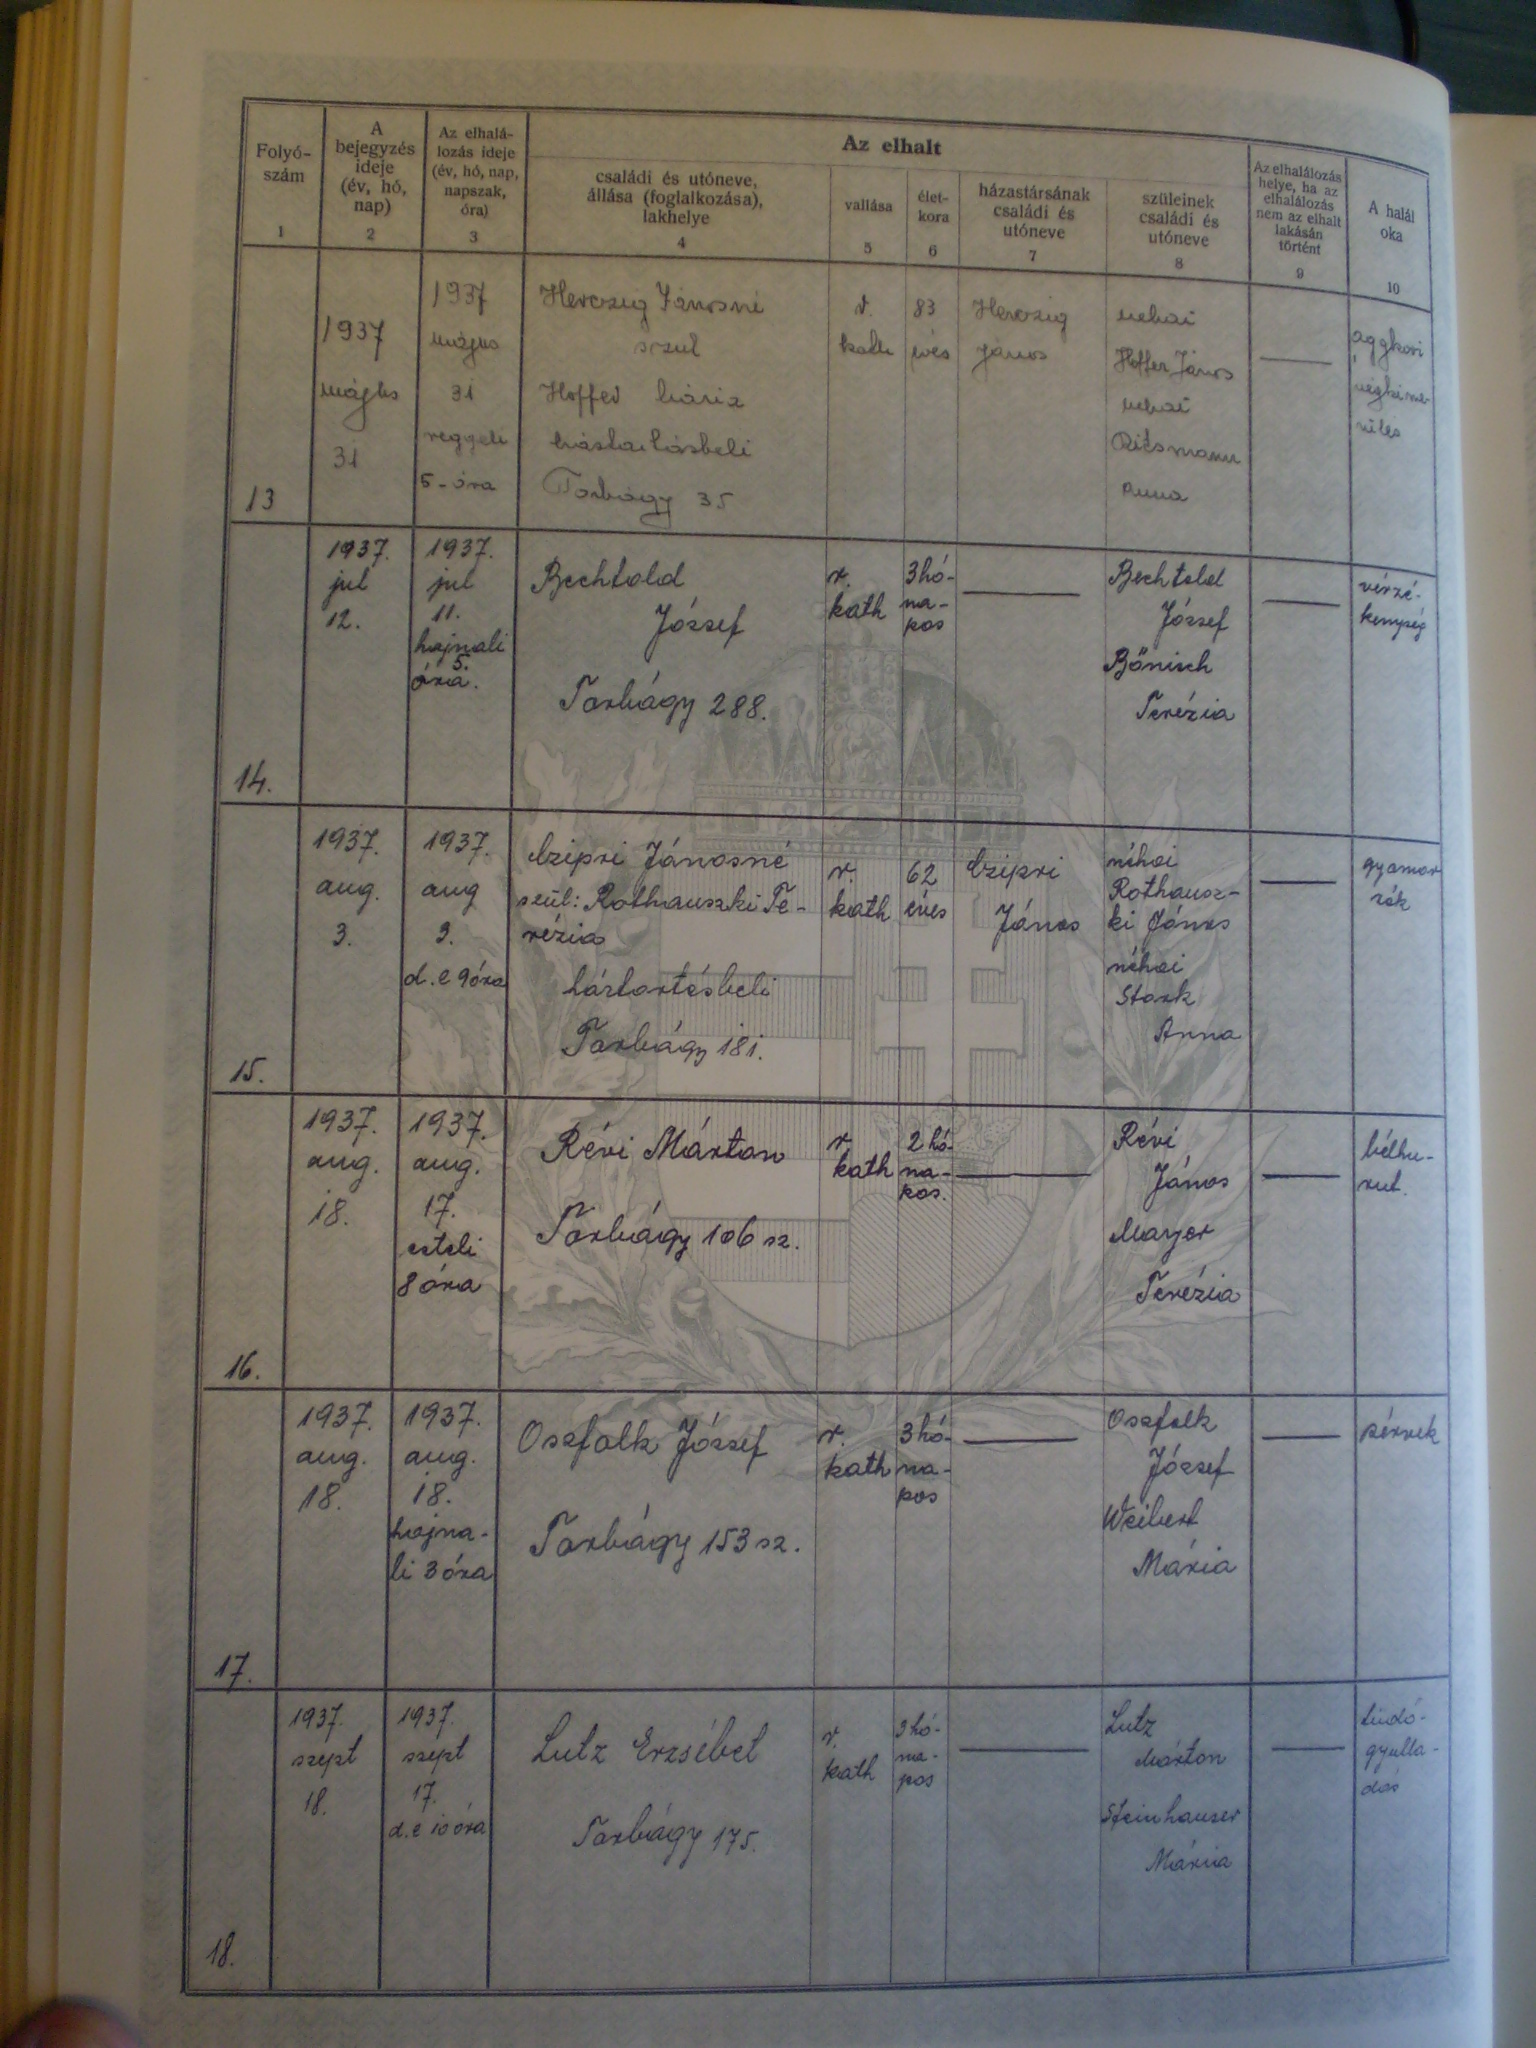 Folyó-
szám
1
A
bejegyzés
ideje
(év, hó,
nap)
2
Az elhalá-
lozás ideje
(év, hó, nap,
napszak,
óra)
3
Az elhalt
családi és utóneve,
állása (foglalkozása),
lakhelye
4
vallása
5
élet-
kora
6
házastársának
családi és
utóneve
7
szüleinek
családi és
utóneve
8
Az elhalálozás
helye, ha az
elhalálozás
nem az elhalt
lakásán
történt
9
A halál
oka
10
13
1937
május
31
1937
május
31
reggeli
5-óra
Herczig Jánosné
szül
Hoffer Mária
háztartásbeli
Torbágy 35
r.
kath
83
éves
Herczig
János
néhai
Hoffer János
néhai
Ritsmann
Anna
aggkori
végkime-
rülés
14.
1937.
jul
12.
1937.
jul
11.
hajnali
5.
óra.
Bechtold
József
Torbágy 288.
r.
kath
3 hó-
na-
pos
Bechtold
József
Bőnisch
Terézia
vérzé-
kenység
15.
1937.
aug.
3.
1937.
aug
3.
d.e 9 óra
Czipri Jánosné
szül: Rothauszki Te-
rézia
háztartásbeli
Torbágy 181.
r.
kath
62
éves
Czipri
János
néhai
Rothausz-
ki János
néhai
Stark
Anna
gyomor
rák
16.
1937.
aug.
18.
1937.
aug.
17.
esteli
8 óra
Révi Márton
Torbágy 106 sz.
r.
kath
2 hó-
na-
pos.
Révi
János
Mayer
Terézia
bélhu-
rut.
17.
1937.
aug.
18.
1937.
aug.
18.
hajna-
li 3 óra
Oszfolk József
Torbágy 153 sz.
r.
kath
3 hó-
na-
pos
Oszfolk
József
Weibert
Mária
18.
1937.
szept
18.
1937.
szept
17.
d.e 10 óra
Lutz Erzsébet
Torbágy 175.
r.
kath
3 hó-
na-
pos
Lutz
Márton
Steinhauser
Mária
tüdő-
gyulla-
dás